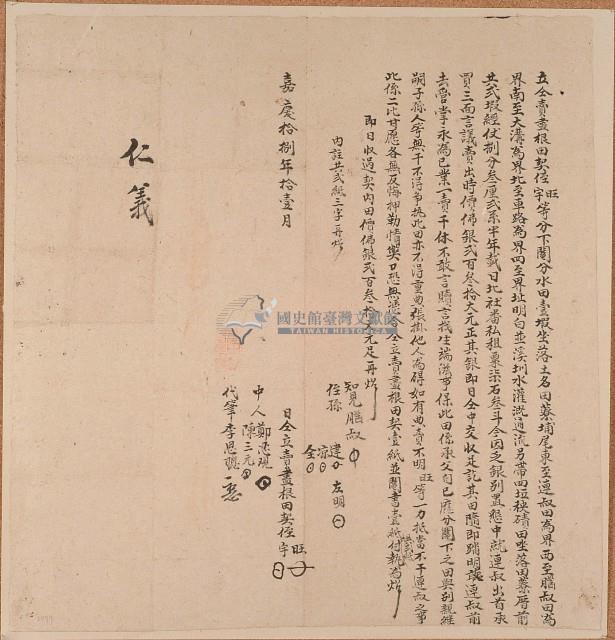 立仝賣盡根田契侄旺宇等分下鬮分水田壹瑕坐落土名田藔埔尾東至連叔田為界西至腦叔田為
界南至大溝為界北至車路為界四至界址明白並溪圳水灌溉通流另帶田垃秧磧田坐落田藔厝前
共弍瑕經仗捌分叁厘弍系半年載日北社番私租粟柒石叁斗今因乏銀別置慿中就連叔出首承
買三面言議賣出時價佛銀弍百叁拾大元正其銀即日仝中交收足訖其田隨即踏明讓連叔前
去管掌永為己業一賣千休不敢言贖言找生端滋事保此田係承父自己應分鬮下之田與別親經
嗣子孫人等無干不得爭执此田亦无得重典張掛他人為碍如有典賣不明旺等一力抵當不干連叔之事
此係二比甘愿各無反悔押勒情獘口恐無憑今仝立賣盡根田契壹紙並鬮書壹紙付執為炤
即日收過契內田價佛銀弍百叁拾大元足再炤
內註共弍紙三字再炤
知見腦叔
侄孫 建 左明
中人 鄭 陳三元
代筆李恩
嘉慶拾捌年拾壹月 日仝立賣盡根田契侄旺宇
仁義
國史館臺灣文獻館
TAIWAN HISTORICA